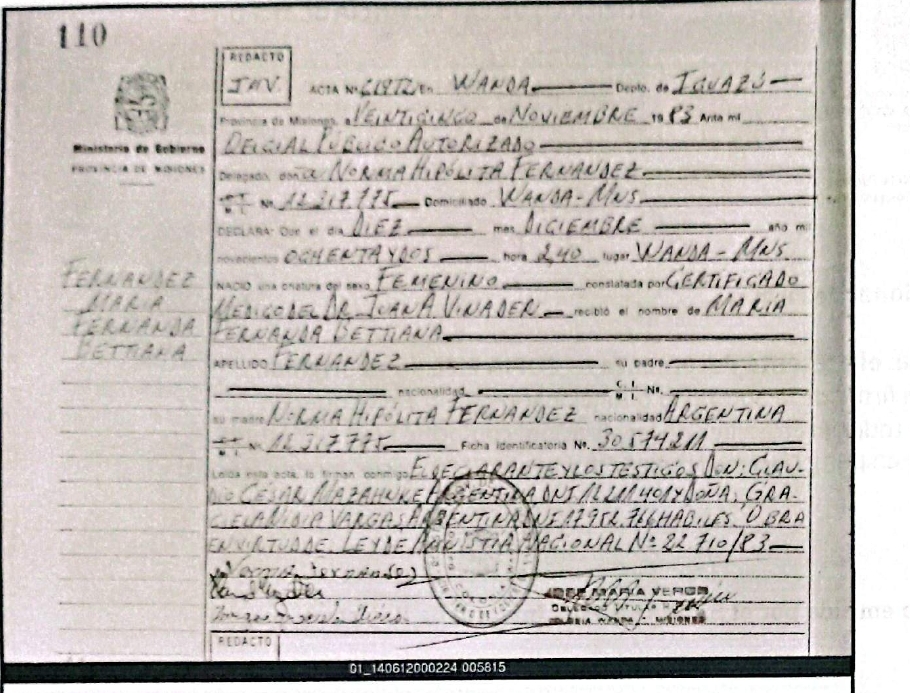 110
REDACTO
ACTA Nº En WANDA Depto. de IGUAZÚ
Provincia de Misiones, a VEINTICINCO de NOVIEMBRE 1983 Ante mi
Ministerio de Gobierno
OFICIAL PÚBLICO AUTORIZADO
PROVINCIA DE MISIONES
Delegado, NORMA HIPÓLITA FERNANDEZ
M. I. Nº 12.317.775 Domiciliado WANDA-MNS
DECLARA: Que el día DIEZ mes DICIEMBRE año mil
novecientos OCHENTA Y DOS hora 2,40 lugar WANDA-MNS
FERNANDEZ
MARIA
FERNANDA
BETTIANA
NACIO una criatura del sexo FEMENINO constatada por CERTIFICADO
MEDICO DEL DR. JUAN A VINADER recibió el nombre de MARIA
FERNANDA BETTIANA
APELLIDO FERNANDEZ su padre
nacionalidad C. I. M. I. Nº.
su madre NORMA HIPÓLITA FERNANDEZ nacionalidad ARGENTINA
M. I. Nº 12.317.775 Ficha Identificatoria Nº. 30.574211
Leída esta acta, la firman conmigo EL DECLARANTE Y LOS TESTIGOS DON: CLAU-
DIO CÉSAR ARGENTINA DNI Y DOÑA: GRA-
CIELA NIDIA VARGAS ARGENTINA DNI HABILES OBRA
EN VIRTUD DE LEY DE AMNISTIA NACIONAL Nº 22.710/83
JOSE MARIA
DELEGADO TITULAR
COLONIA WANDA - MISIONES
REDACTO
01_140612000224 005815